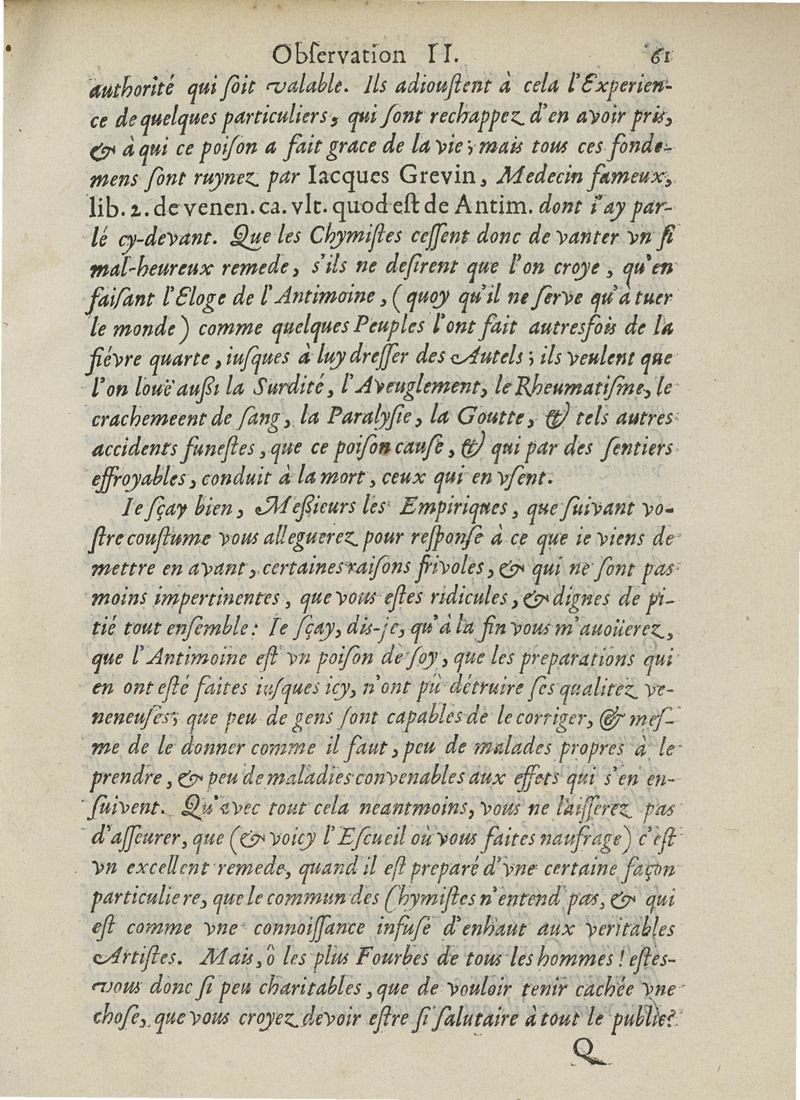 Obſervation II. 61
authorité qui ſoit valable. Ils adiouſtent à cela l'Experien-
ce de quelques particuliers, qui ſont rechappez d'en avoir pris,
& à qui ce poiſon a fait grace de la vie; mais tous ces fonde-
mens ſont ruynez par Iacques Grevin, Medecin fameux,
lib. 2. de venen. ca. vlt. quod eſt de Antim. dont i'ay par-
lé cy-devant. Que les Chymiſtes ceſſent donc de vanter vn ſi
mal-heureux remede, s'ils ne deſirent que l'on croye, qu'en
faiſant l'Eloge de l'Antimoine, (quoy qu'il ne ſerve qu'à tuer
le monde) comme quelques Peuples l'ont fait autresfois de la
fiévre quarte, iuſques à luy dreſſer des Autels; ils veulent que
l'on louë auſsi la Surdité, l'Aveuglement, le Rheumatiſme, le
crachemeent de ſang, la Paralyſie, la Goutte, & tels autres
accidents funeſtes, que ce poiſon cauſe, & qui par des ſentiers
effroyables, conduit à la mort, ceux qui en vſent.
Ie ſçay bien, Meſsieurs les Empiriques, que ſuivant vo-
ſtre couſtume vous alleguerez pour reſponſe à ce que ie viens de
mettre en avant, certaines raiſons frivoles, & qui ne ſont pas
moins impertinentes, que vous eſtes ridicules, & dignes de pi-
tié tout enſemble: Ie ſçay, dis-je, qu'à la fin vous m'auoüerez,
que l'Antimoine eſt vn poiſon de ſoy, que les preparations qui
en ont eſté faites iuſques icy, n'ont pû détruire ſes qualitez ve-
neneuſes; que peu de gens ſont capables de le corriger, & meſ-
me de le donner comme il faut, peu de malades propres à le
prendre, & peu de maladies convenables aux effets qui s'en en-
ſuivent. Qu'avec tout cela neantmoins, vous ne laiſſerez pas
d'aſſeurer, que (& voicy l'Eſcueil où vous faites naufrage) c'eſt
vn excellent remede, quand il eſt preparé d'vne certaine façon
particuliere, que le commun des Chymiſtes n'entend pas, & qui
eſt comme vne connoiſſance infuſe d'enhaut aux veritables
Artiſtes. Mais, ô les plus Fourbes de tous les hommes! eſtes-
vous donc ſi peu charitables, que de vouloir tenir cachée vne
choſe, que vous croyez devoir eſtre ſi ſalutaire à tout le public?
Q